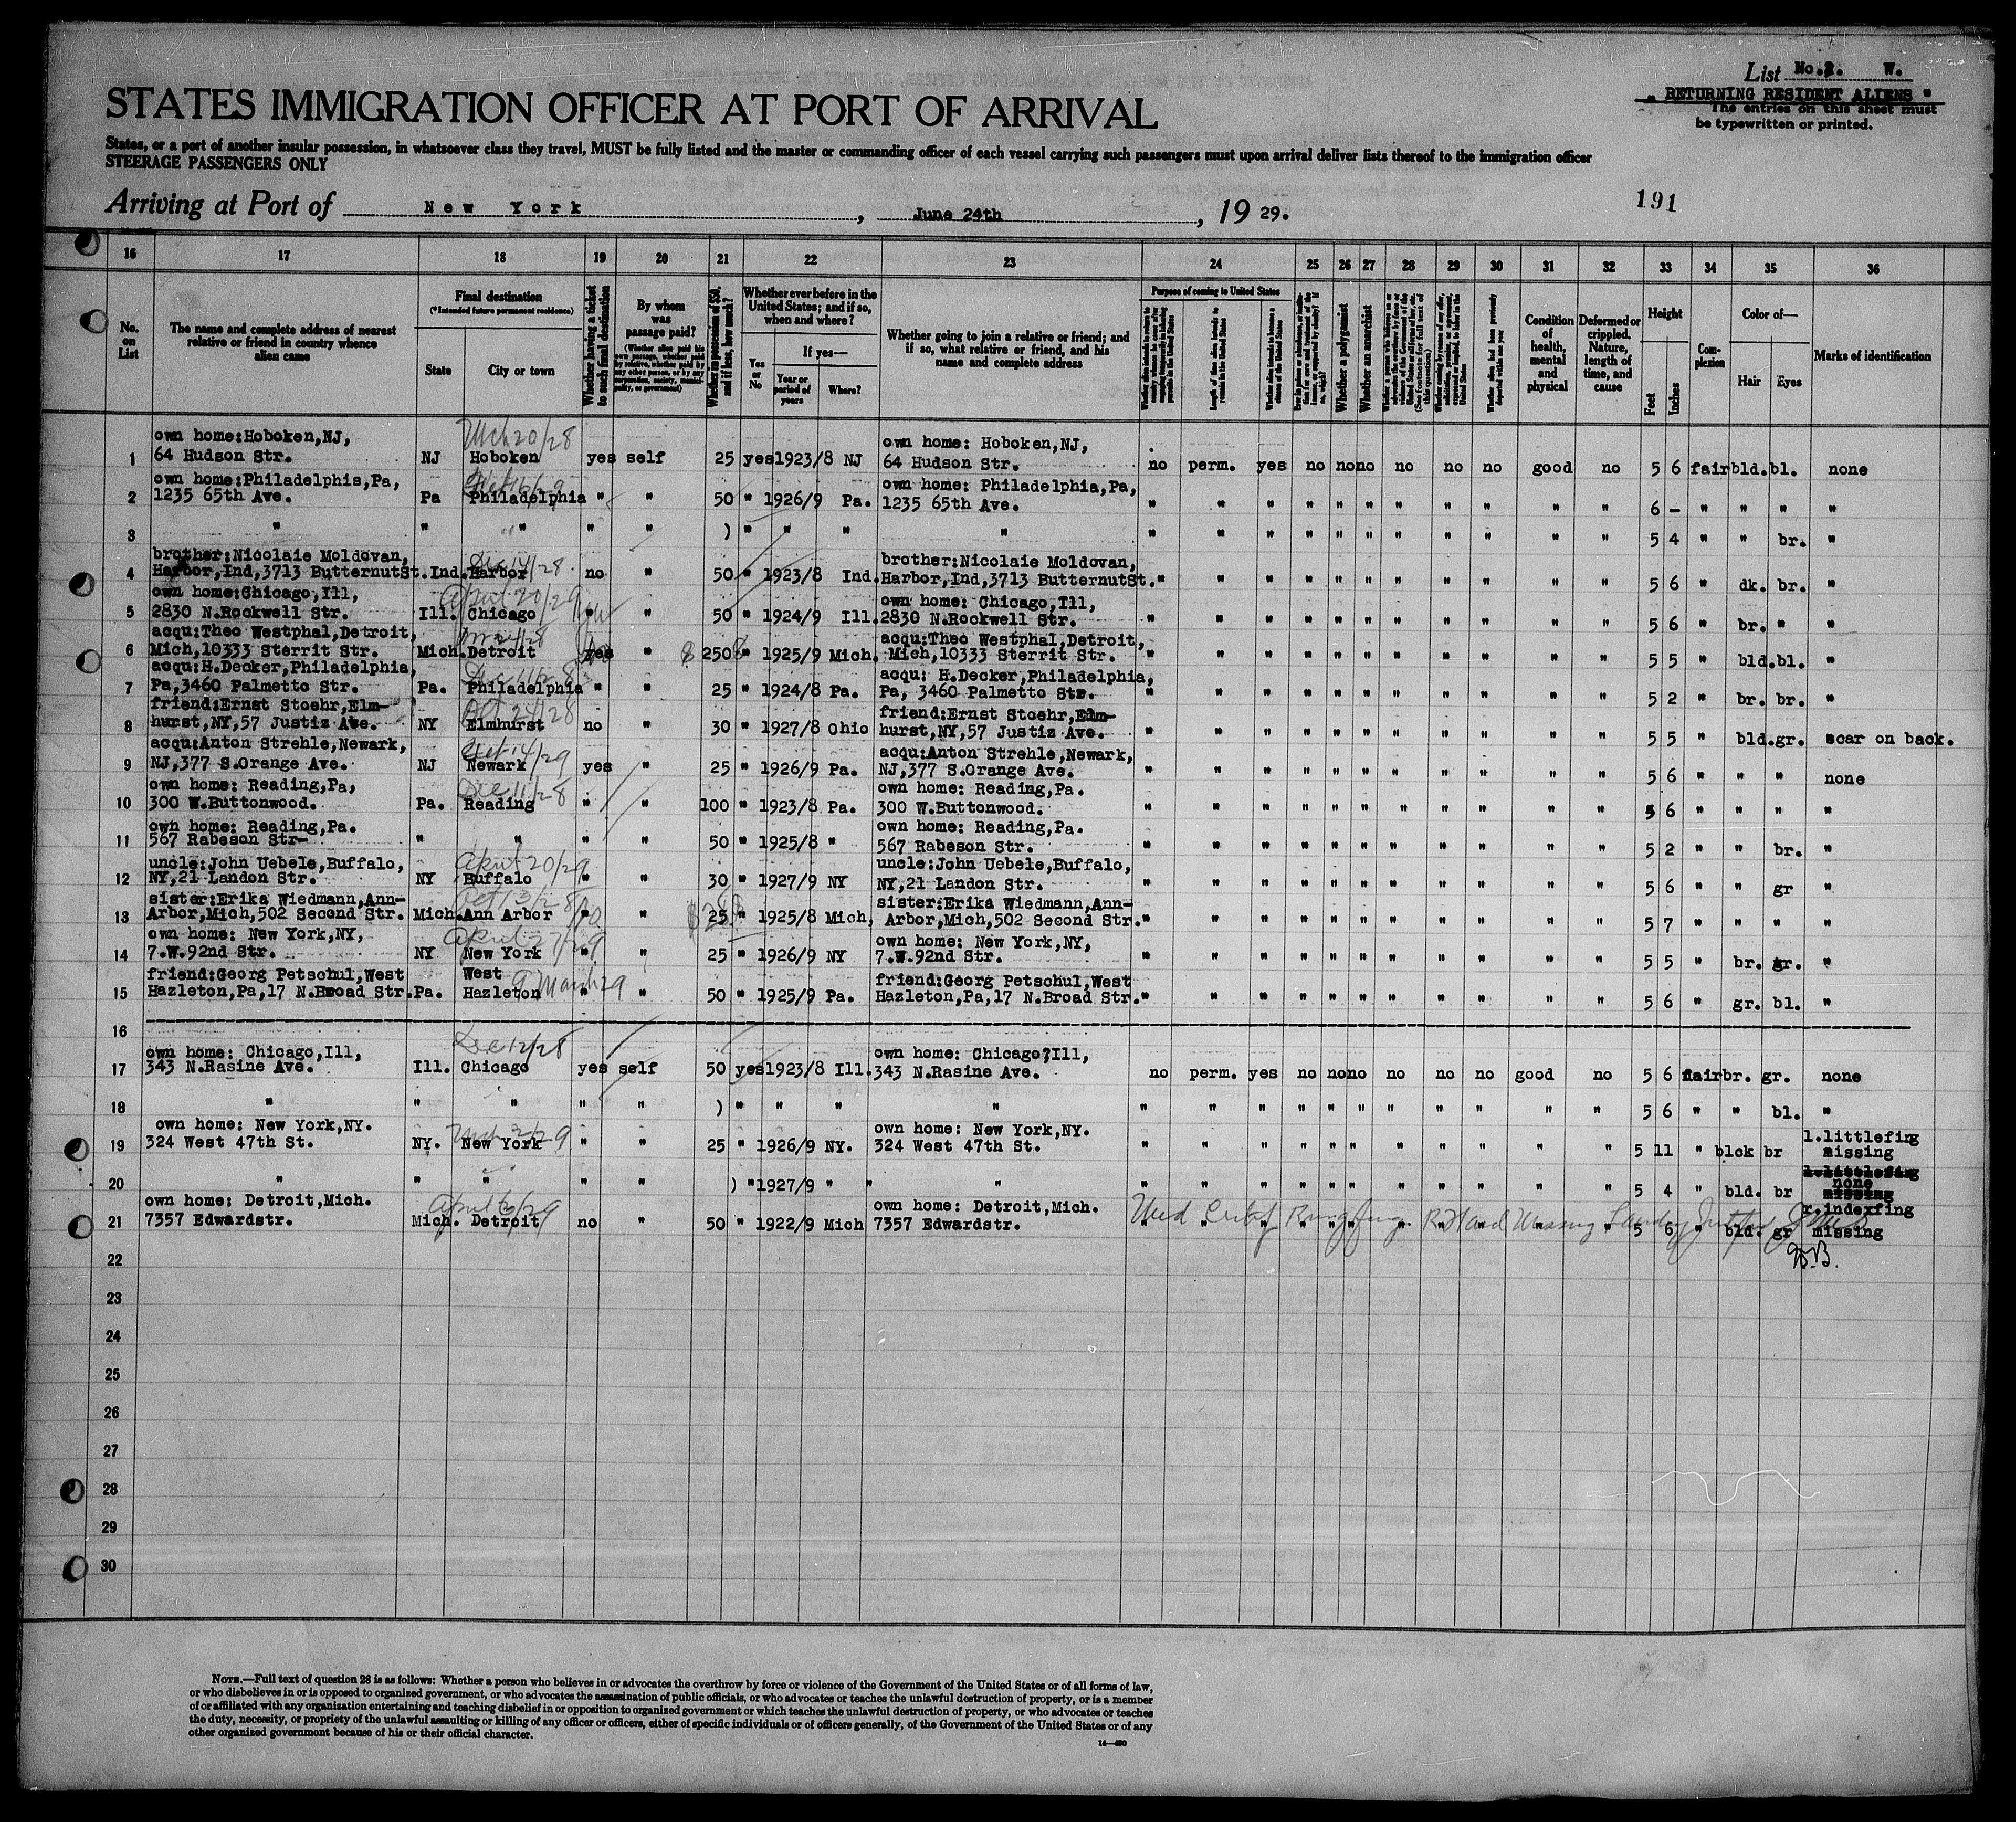 List No. 2. W.
" RETURNING RESIDENT ALIENS "
The entries on this sheet must
be typewritten or printed.
STATES IMMIGRATION OFFICER AT PORT OF ARRIVAL
States, or a port of another insular possession, in whatsoever class they travel, MUST be fully listed and the master or commanding officer of each vessel carrying such passengers must upon arrival deliver lists thereof to the immigration officer
STEERAGE PASSENGERS ONLY
Arriving at Port of New York, June 24th, 19 29.
191
16 17 18 19 20 21 22 23 24 25 26 27 28 29 30 31 32 33 34 35 36
No. on List
The name and complete address of nearest relative or friend in country whence alien came
Final destination
(*Intended future permanent residence)
State
City or town
Whether having a ticket to such final destination
By whom was passage paid?
(Whether alien paid his own passage, whether paid by relative, whether paid by any other person, or by any corporation, society, municipality, or government)
Whether in possession of $50, and if less, how much?
Whether ever before in the United States; and if so, when and where?
Yes or No
If yes—
Year or period of years
Where?
Whether going to join a relative or friend; and if so, what relative or friend, and his name and complete address
Purpose of coming to United States
Length of time alien intends to remain in the United States
Whether alien intends to become a citizen of the United States
Whether a polygamist
Whether an anarchist
Condition of health, mental and physical
Deformed or crippled. Nature, length of time, and cause
Height
Feet
Inches
Complexion
Color of—
Hair
Eyes
Marks of identification
Mch 20/28
own home:Hoboken,NJ, own home: Hoboken,NJ,
1 64 Hudson Str. NJ Hoboken yes self 25 yes 1923/8 NJ 64 Hudson Str. no perm. yes no no no no no no good no 5 6 fair bld. bl. none
own home:Philadelphis,Pa, own home: Philadelphia,Pa,
2 1235 65th Ave. Pa Philadelphia " " 50 " 1926/9 Pa. 1235 65th Ave. " " " " " " " " " " " 6 - " " " "
3 " " " " " ) " " " " " " " " " " " " " " " 5 4 " " br. "
brother:Nicolaie Moldovan, Dec 14/28. brother:Nicolaie Moldovan,
4 Harbor,Ind,3713 ButternutSt. Ind. Harbor no " 50 " 1923/8 Ind. Harbor,Ind,3713 ButternutSt. " " " " " " " " " " " 5 6 " dk. br. "
own home:Chicago,Ill, April 20/29 own home: Chicago,Ill,
5 2830 N.Rockwell Str. Ill. Chicago " " 50 " 1924/9 Ill. 2830 N.Rockwell Str. " " " " " " " " " " " 5 6 " br. " "
acqu:Theo Westphal,Detroit, acqu:Theo Westphal,Detroit,
6 Mich,10333 Sterrit Str. Mich. Detroit yes " $ 250 " 1925/9 Mich. Mich,10333 Sterrit Str. " " " " " " " " " " " 5 5 " bld. bl. "
acqu:H.Decker,Philadelphia, Dec 11/28 acqu: H.Decker,Philadelphia,
7 Pa,3460 Palmetto Str. Pa. Philadelphia " " 25 " 1924/8 Pa. Pa, 3460 Palmetto Str. " " " " " " " " " " " 5 2 " br. br. "
friend:Ernst Stoehr,Elm- Oct 24/28 friend:Ernst Stoehr,Elm-
8 hurst,NY,57 Justiz Ave. NY Elmhurst no " 30 " 1927/8 Ohio hurst,NY,57 Justiz Ave. " " " " " " " " " " " 5 5 " bld. gr. scar on back.
acqu:Anton Strehle,Newark, acqu:Anton Strehle,Newark,
9 NJ,377 S.Orange Ave. NJ Newark yes " 25 " 1926/9 Pa. NJ,377 S.Orange Ave. " " " " " " " " " " " 5 6 " " " none
own home: Reading,Pa, Dec 11/28 own home: Reading,Pa.
10 300 W.Buttonwood. Pa. Reading " " 100 " 1923/8 Pa. 300 W.Buttonwood. " " " " " " " " " " " 5 6 " " " "
own home: Reading,Pa. own home: Reading,Pa.
11 567 Rabeson Str- " " " " 50 " 1925/8 " 567 Rabeson Str. " " " " " " " " " " " 5 2 " " br. "
uncle:John Uebele,Buffalo, April 20/29 uncle:John Uebele,Buffalo,
12 NY,21 Landon Str. NY Buffalo " " 30 " 1927/9 NY NY,21 Landon Str. " " " " " " " " " " " 5 6 " " gr "
sister:Erika Wiedmann,Ann- Oct 13/28 sister:Erika Wiedmann,Ann-
13 Arbor,Mich,502 Second Str. Mich. Ann Arbor " " 25 " 1925/8 Mich, Arbor,Mich,502 Second Str. " " " " " " " " " " " 5 7 " " " "
own home: New York,NY, April 27/29 own home: New York,NY,
14 7.W.92nd Str. NY New York " " 25 " 1926/9 NY 7.W.92nd Str. " " " " " " " " " " " 5 5 " br. gr. "
friend:Georg Petschul,West West 9 March 29 friend:Georg Petschul,West
15 Hazleton,Pa,17 N.Broad Str. Pa. Hazleton " " 50 " 1925/9 Pa. Hazleton,Pa,17 N.Broad Str. " " " " " " " " " " " 5 6 " gr. bl. "
16
own home: Chicago,Ill, Dec 12/28 own home: Chicago?Ill,
17 343 N.Rasine Ave. Ill. Chicago yes self 50 yes 1923/8 Ill. 343 N.Rasine Ave. no perm. yes no no no no no no good no 5 6 fair br. gr. none
18 " " " " " ) " " " " " " " " " " " " " " " 5 6 " " bl. "
own home: New York,NY. own home: New York,NY. l.littlefing
19 324 West 47th St. NY. New York " " 25 " 1926/9 NY. 324 West 47th St. " " " " " " " " " " " 5 11 " blck br missing
20 " " " " " ) " 1927/9 " " " " " " " " " " " " " 5 4 " bld. br none
own home: Detroit,Mich. April 6/29 own home: Detroit,Mich. r.indexfing
21 7357 Edwardstr. Mich. Detroit no " 50 " 1922/9 Mich 7357 Edwardstr. 5 6 " bld. gr missing
22
23
24
25
26
27
28
29
30
NOTE.—Full text of question 28 is as follows: Whether a person who believes in or advocates the overthrow by force or violence of the Government of the United States or of all forms of law,
or who disbelieves in or is opposed to organized government, or who advocates the assassination of public officials, or who advocates or teaches the unlawful destruction of property, or is a member
of or affiliated with any organization entertaining and teaching disbelief in or opposition to organized government or which teaches the unlawful destruction of property, or who advocates or teaches
the duty, necessity, or propriety of the unlawful assaulting or killing of any officer or officers, either of specific individuals or of officers generally, of the Government of the United States or of any
other organized government because of his or their official character.
14—480